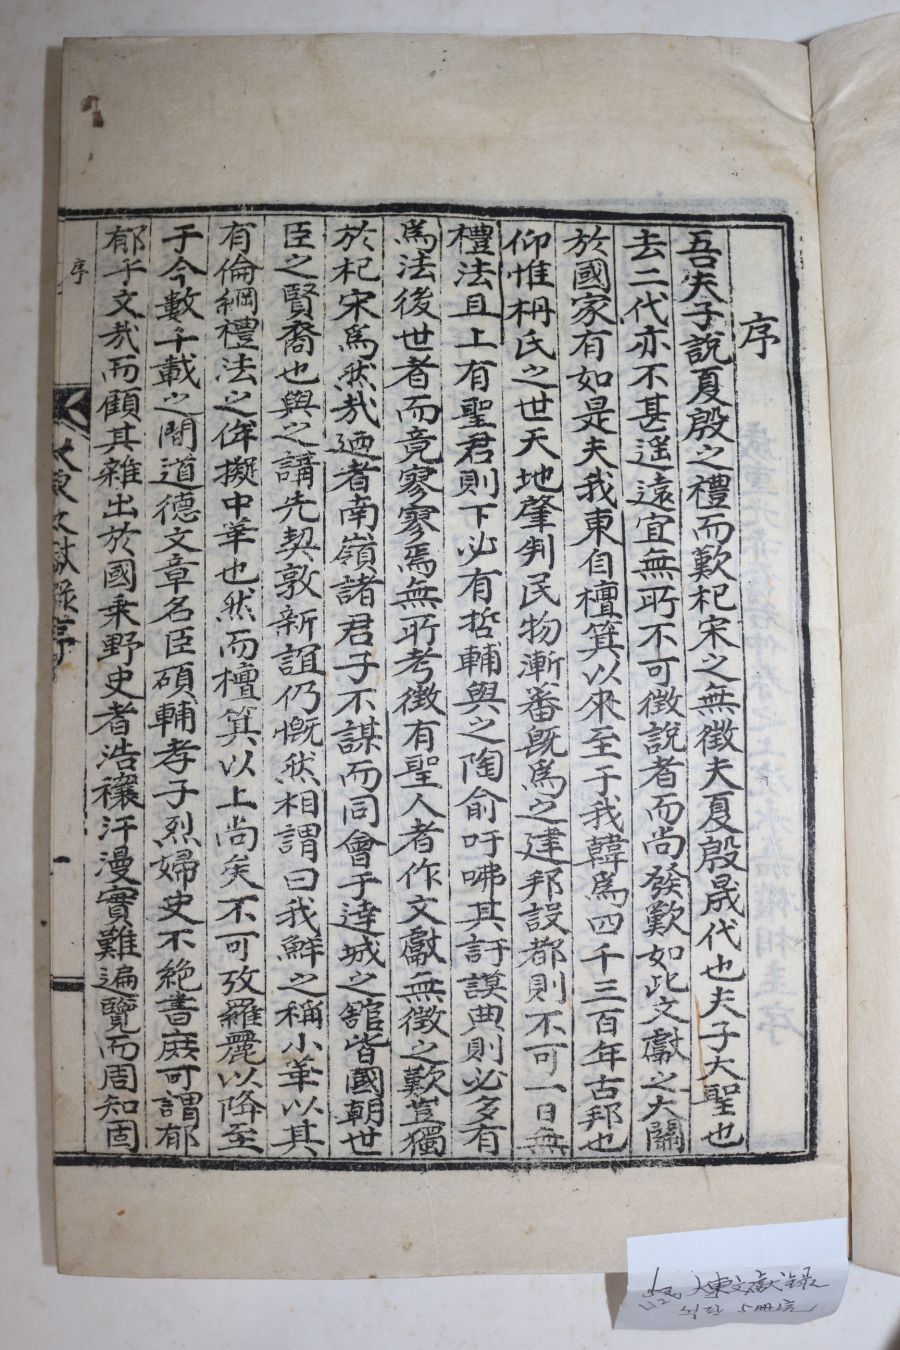 序
吾夫子說夏殷之禮而歎杞宋之無徵夫夏殷晟代也夫子大聖也
去二代亦不甚遙遠宜無所不可徵說者而尚發歎如此文獻之大關
於國家有如是夫我東自檀箕以來至于我韓爲四千三百年古邦也
仰惟枏氏之世天地肇判民物漸蕃旣爲之建邦設都則不可一日無
禮法且上有聖君則下必有哲輔與之陶俞吁咈其訏謨典則必多有
爲法後世者而竟寥寥焉無所考徵有聖人者作文獻無徵之歎豈獨
於杞宋爲然哉迺者南嶺諸君子不謀而同會于達城之舘皆國朝世
臣之賢裔也與之講先契敦新誼仍慨然相謂曰我鮮之稱小華以其
有倫綱禮法之侔擬中華也然而檀箕以上尚矣不可攷羅麗以降至
于今數千載之間道德文章名臣碩輔孝子烈婦史不絶書庶可謂郁
郁乎文哉而顧其雜出於國乘野史者浩穰汗漫實難遍覽而周知固
序
大東文獻錄序
一
大東文獻錄
5冊